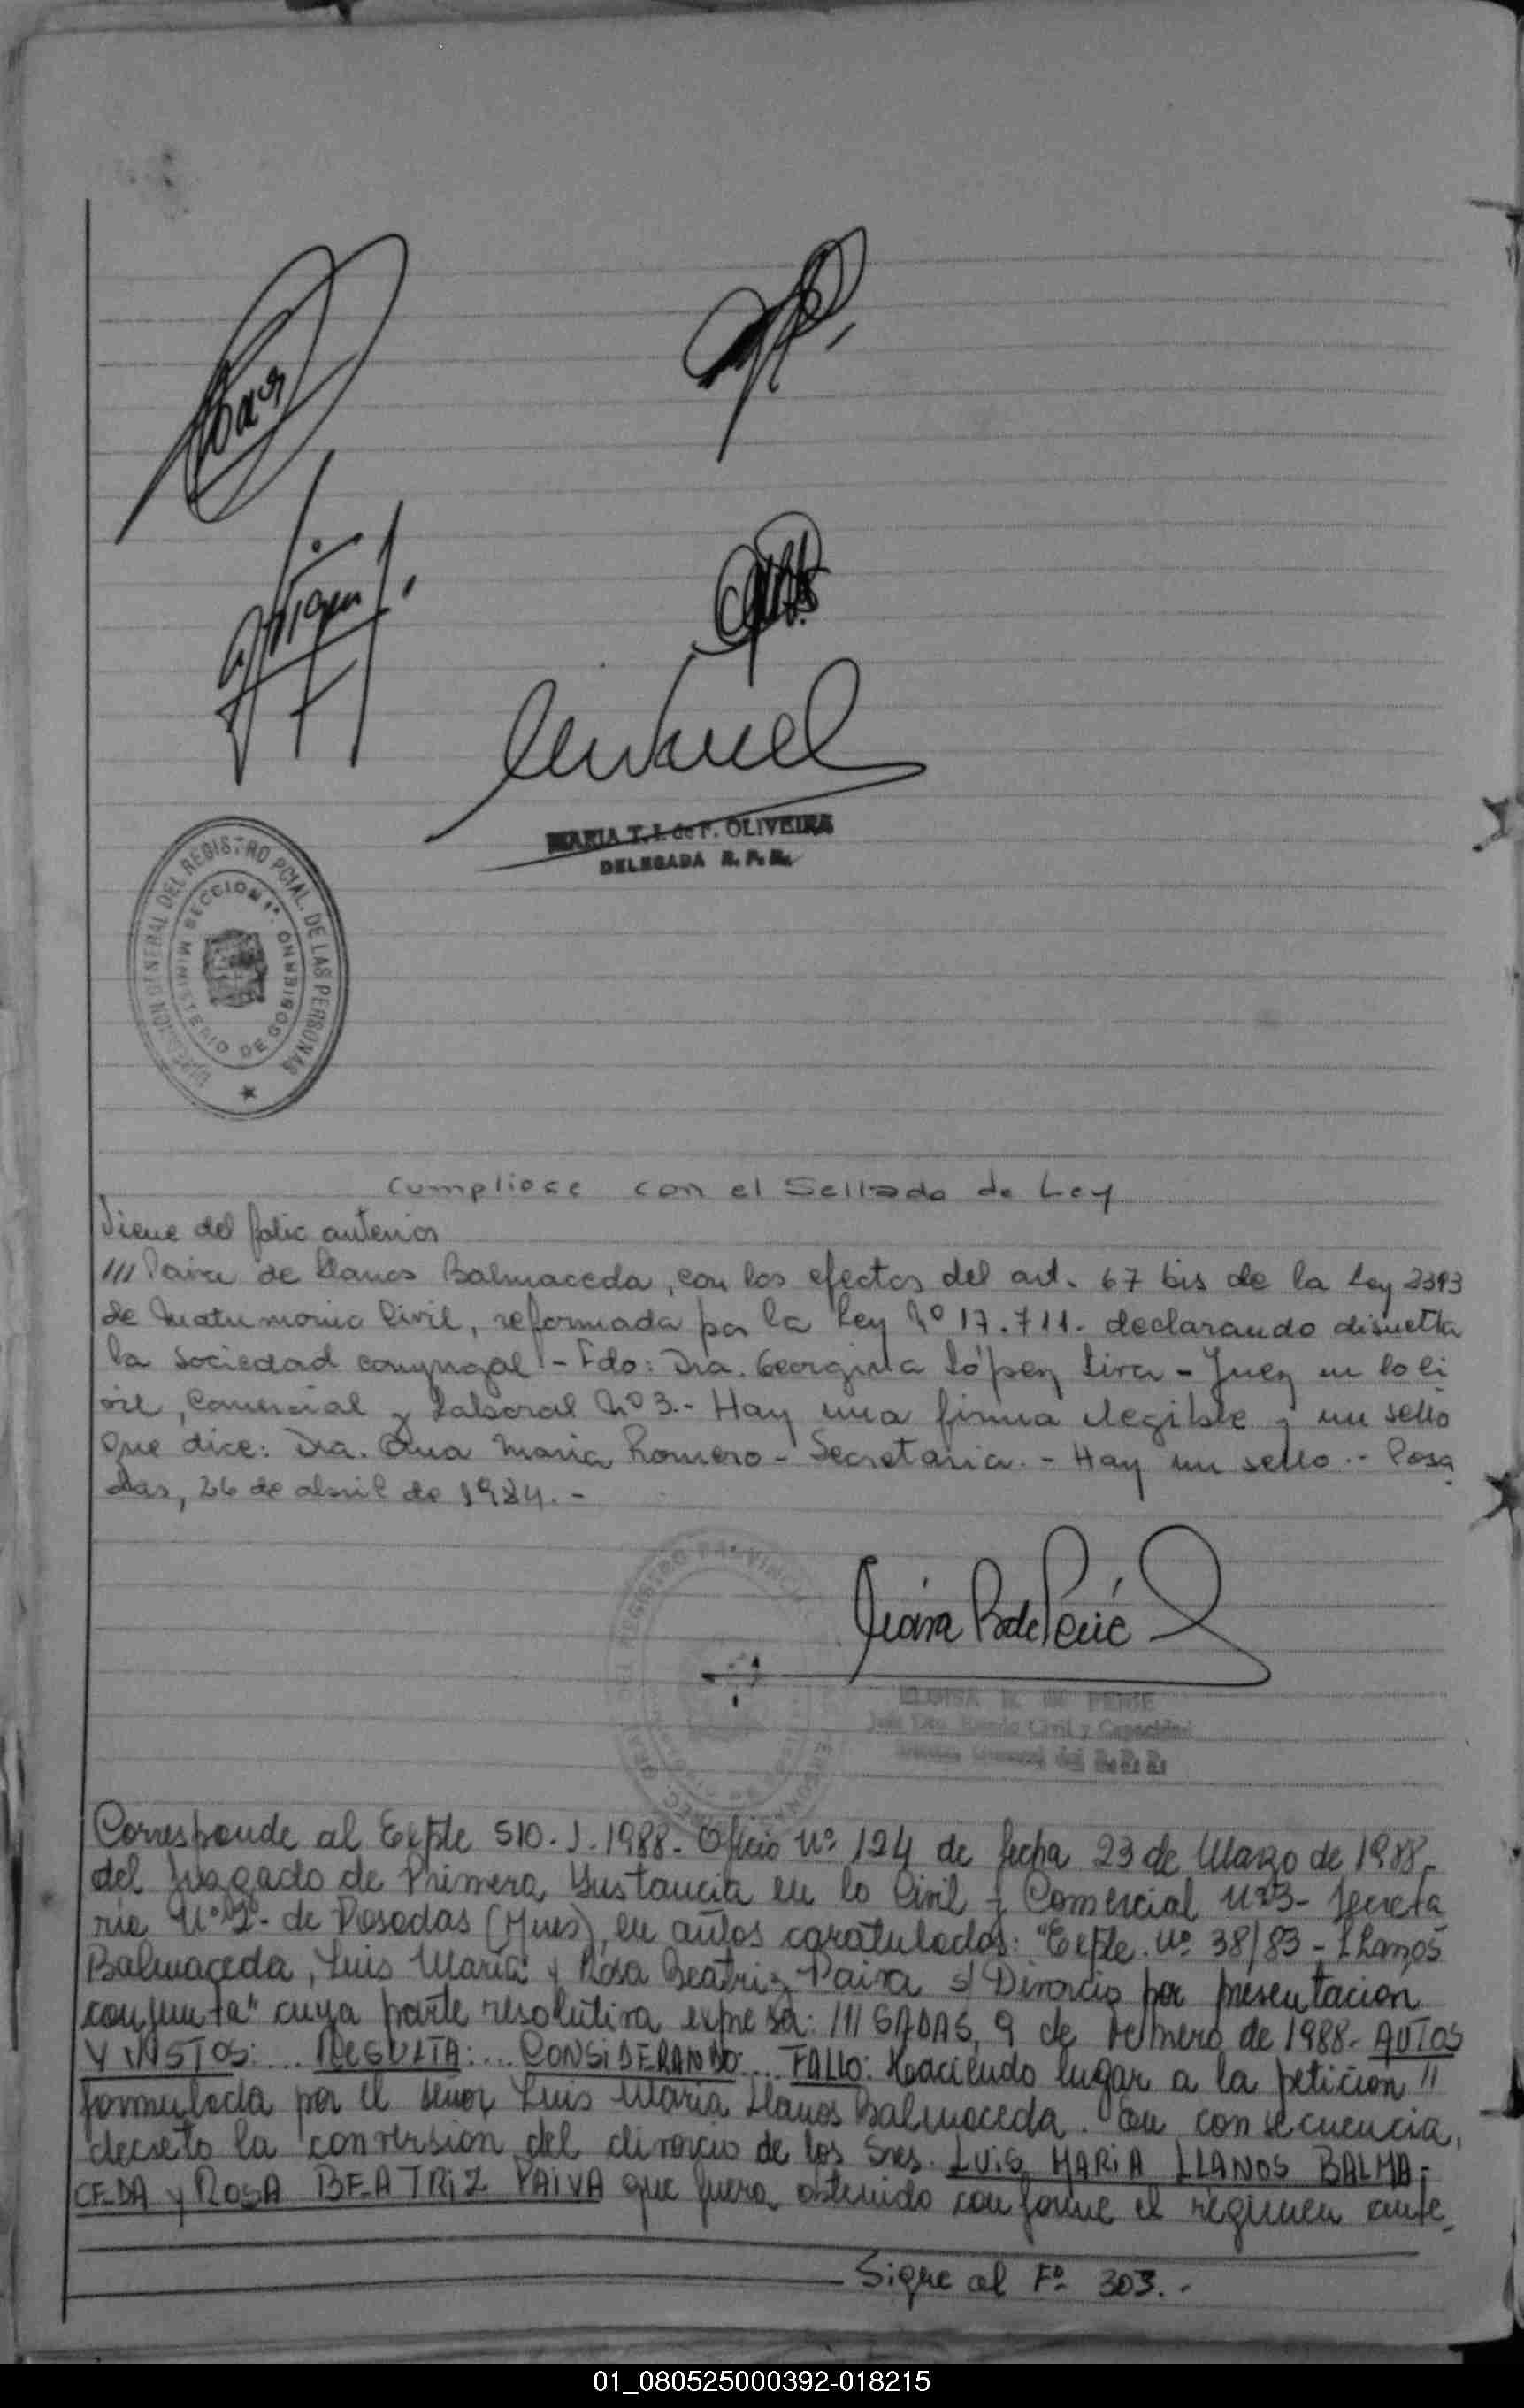 MARIA T. I. de F. OLIVEIRA
DELEGADA R. P. P.
DIRECCION GENERAL DEL REGISTRO PCIAL. DE LAS PERSONAS
SECCION 1ª.
MINISTERIO DE GOBIERNO
Cumpliose con el Sellado de Ley
Viene del folio anterior
/// Paiva de Llanos Balmaceda, con los efectos del art. 67 bis de la Ley 2393
de Matrimonio Civil, reformada por la Ley Nº 17.711. declarando disuelta
la sociedad conyugal.- Fdo: Dra. Georgina López Liva - Juez en lo Ci
vil, Comercial y Laboral Nº 3.- Hay una firma ilegible y un sello
que dice: Dra. Ana Maria Romero - Secretaria. - Hay un sello.- Posa
das, 26 de abril de 1984. -
ELOISA R. DE PERIE
Civil y Capacidad
General del R.P.P.
Corresponde al Expte 510. J. 1988. Oficio Nº 124 de fecha 23 de Marzo de 1988.
del Juzgado de Primera Instancia en lo Civil y Comercial Nº3- Secreta
ria Nº de Posadas (Mnes), en autos caratulados: "Expte. Nº 38/83 - Llanos
Balmaceda, Luis María y Rosa Beatriz Paiva s/ Divorcio por presentación
conjunta" cuya parte resolutiva expresa: /// SADAS, 9 de Febrero de 1988. AUTOS
Y VISTOS:... RESULTA:... CONSIDERANDO:... FALLO: Haciendo lugar a la petición //
formulada por el señor Luis Maria Llanos Balmaceda. En consecuencia,
decreto la conversión del divorcio de los Sres. LUIS MARIA LLANOS BALMA-
CEDA y ROSA BEATRIZ PAIVA que fuera obtenido conforme el régimen ante_
Sigue al Fº 303.-
01_080525000392-018215